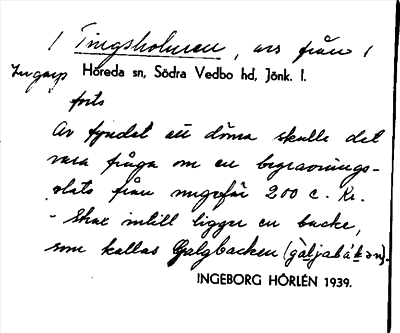 / Tingsholmen, ers från /
Ingarp Höreda sn, Södra Vedbo hd, Jönk. l.
forts
Av fyndet att döma skulle det
vara fråga om en begravnings-
plats från ungefär 200 e. Kr.
- Strax intill ligger en backe,
som kallas Galgbacken (gàljabákən).
INGEBORG HÖRLÉN 1939.